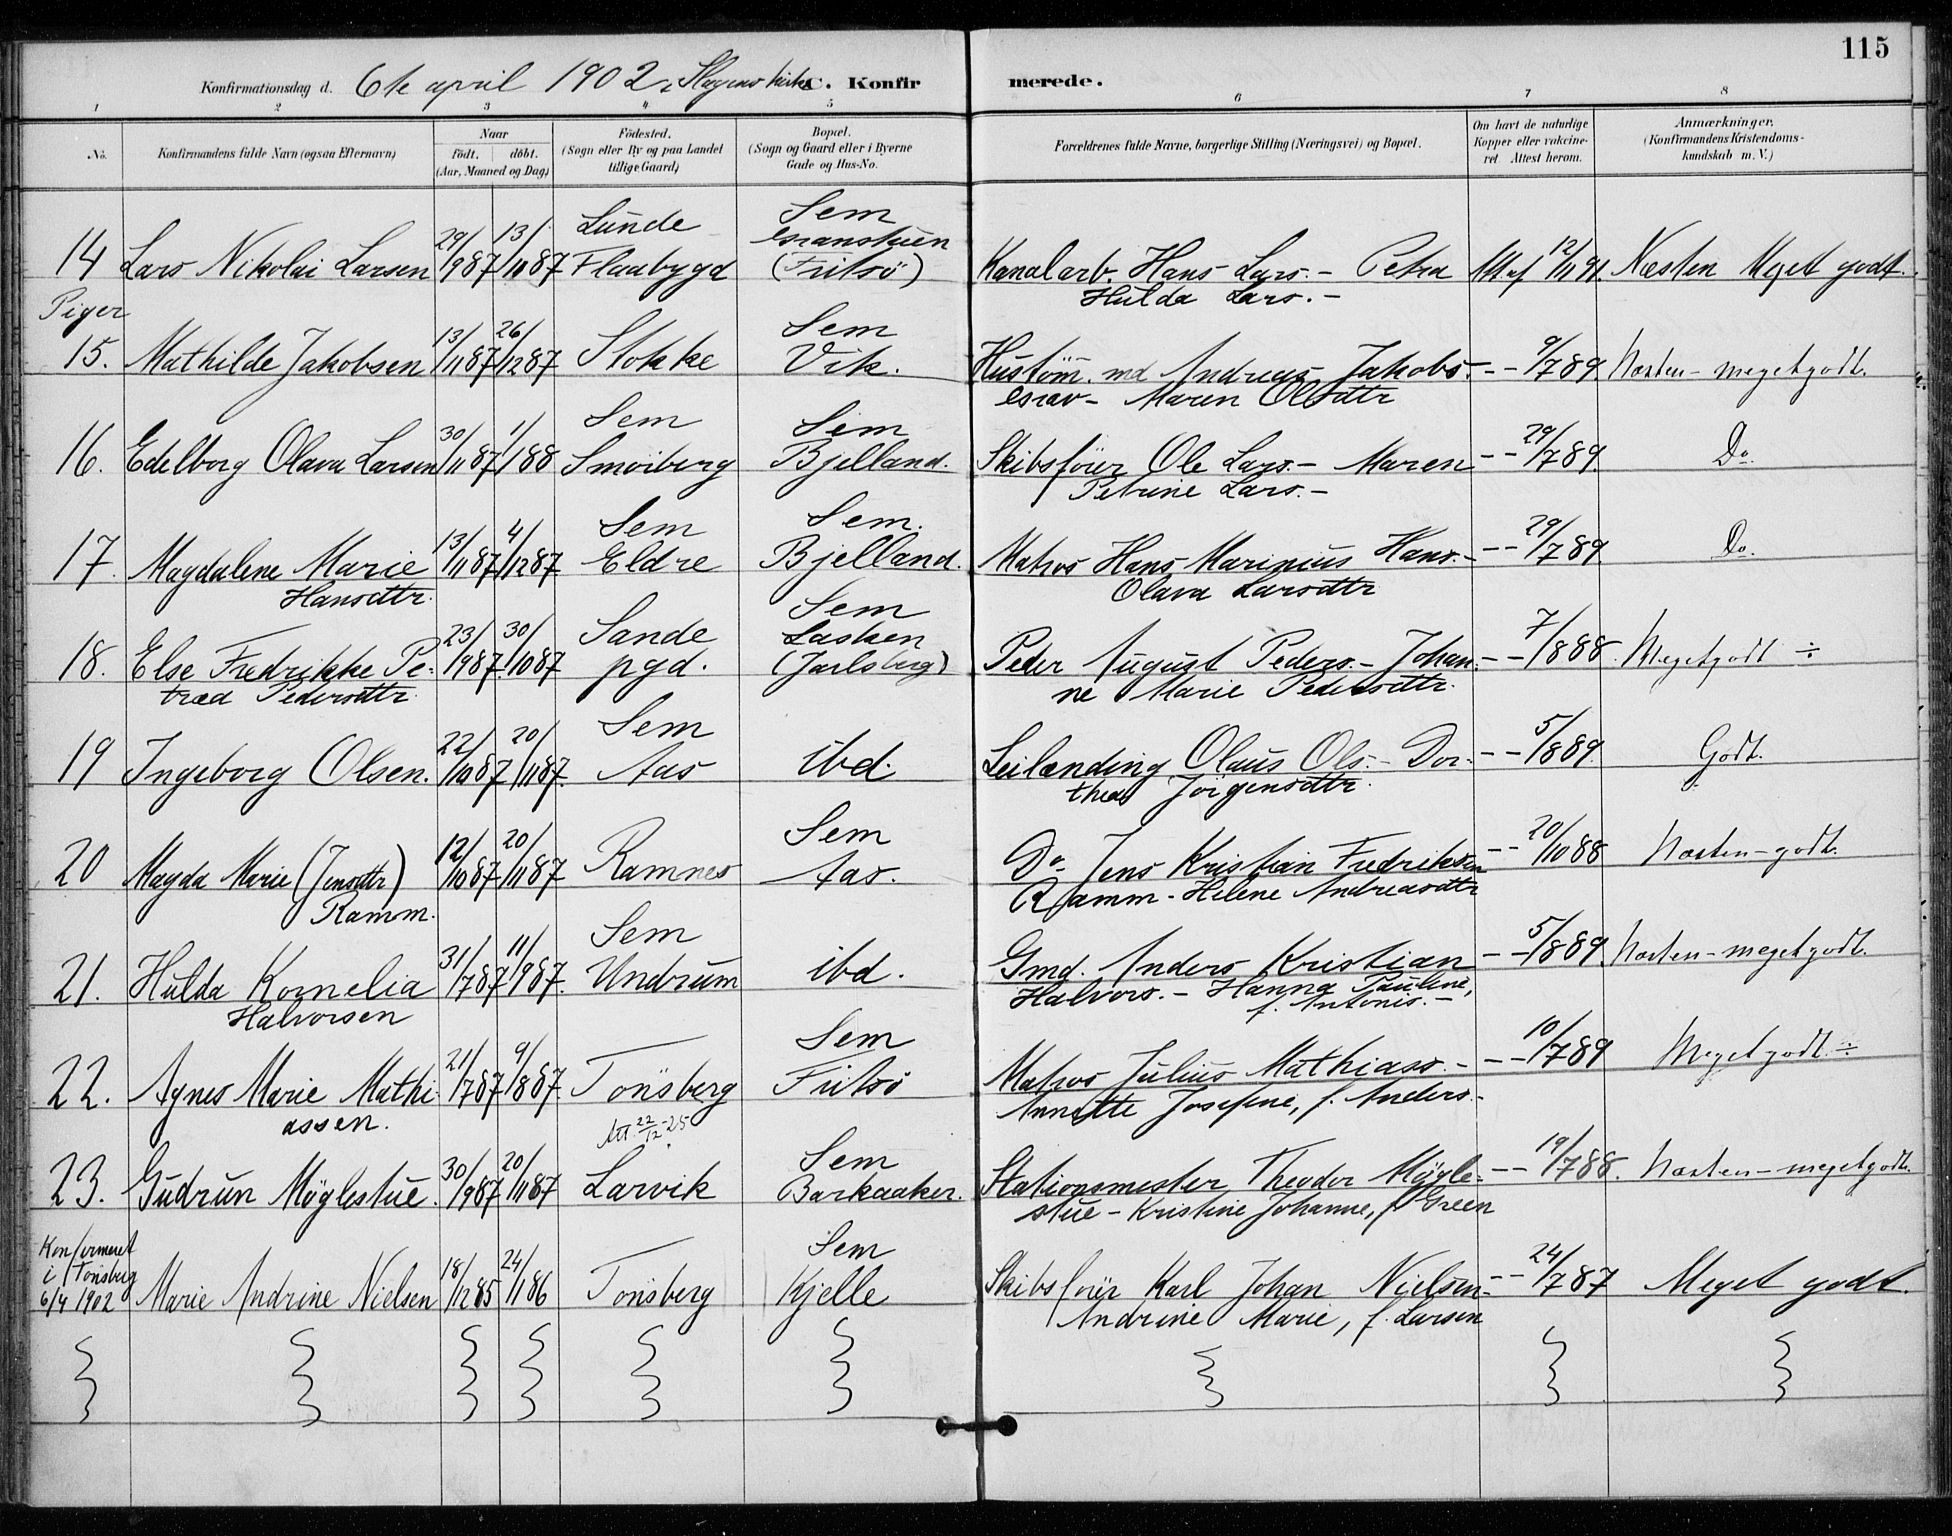 115
Konfirmationsdag d. 6te april 1902 i Slagens kirke C. Konfirmerede.
1 2 3 4 5 6 7 8
No. Konfirmandens fulde Navn (ogsaa Efternavn) Naar födt. döbt. (Aar, Maaned og Dag) Födested. (Sogn eller By og paa Landet tillige Gaard) Bopæl. (Sogn og Gaard eller i Byerne Gade og Hus-No. Forældrenes fulde Navne, borgerlige Stilling (Næringsvei) og Bopæl. Om havt de naturlige Kopper eller vakcineret Attest herom. Anmærkninger. (Konfirmandens Kristendomskundskab m. V.)
14 Lars Nikolai Larsen 29/987 13/1087 Lunde Flaabygd Sem Granstuen (Fritsö) Kanalarb. Hans Lars.- Petra Hulda Lars.- Att. af 12/11 91. Næsten Meget godt.
Piger
15. Mathilde Jakobsen 13/1187 26/1287 Stokke Sem Vik. Hustöm. md Andreas Jakobs.- Grav- Maren Olsdttr -- 9/789 Næsten-megetgodt.
16. Edelborg Olava Larsen 30/1187 1/188 Sem Smöiberg Sem Bjelland. Skibsförer Ole Lars.- Maren Petrine Lars.- -- 29/789 Do.
17. Magdalene Marie Hansdttr. 13/1187 4/1287 Sem Eldre Sem. Bjelland. Matros Hans Marinius Hans.- Olava Larsdttr -- 29/789. Do.
18. Else Fredrikke Petræa Pedersdttr. 23/987 30/1087 Sande pgd. Sem Lasken (Jarlsberg) Peder August Peders.- Johanne Marie Pedersdttr. -- 7/888. Megetgodt ÷
19 Ingeborg Olsen. 22/1087 20/1187. Sem Aas ibd. Leilænding Olaus Ols.- Dorthea Jörgensdttr. -- 5/889. Godt.
20 Magda Marie (Jensdttr) Ramm. 12/1087 20/1187 Ramnes Sem Aas. Do- Jens Kristian Fredriksen Ramm.- Helene Andreasdttr -- 20/1088 Næsten-godt.
21. Hulda Kornelia Halvorsen 31/787 11/987. Sem Undrum ibd. Gmd. Anders Kristian Halvors.- Hanna Pauline, f. Antonis.- -- 5/889. Næsten-megetgodt.
22. Agnes Marie Mathiassen. 21/787 9/887. Tönsberg Sem Fritsö Matros Julius Mathiass.- Annette Josefine, f. Anders.- -- 10/789 Megetgodt.÷
Att. 22/12-25
23. Gudrun Møglestue. 30/987 20/1187 Larvik Sem Barkaaker. Stationsmester Theodor Møglestue- Kristine Johanne, f Green -- 19/788. Næsten-megetgodt.
Konfirmeret i Tönsberg 6/4 1902 Marie Andrine Nielsen 18/1285 24/186 Tönsberg Sem Kjelle Skibsförer Karl Johan Nielsen- Andrine Marie, f. Larsen -- 24/787 Meget godt.